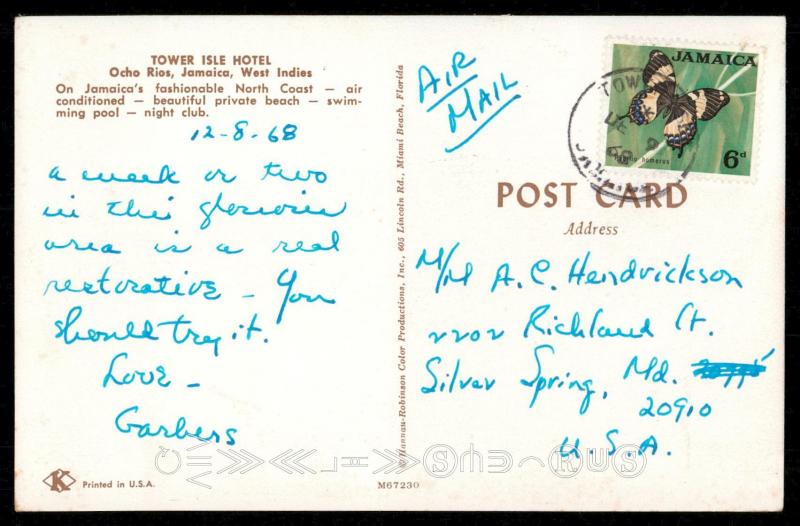 TOWER ISLE HOTEL
Ocho Rios, Jamaica, West Indies
On Jamaica's fashionable North Coast — air
conditioned — beautiful private beach — swim-
ming pool — night club.
12-8-68
a week or two
in this glorious
area is a real
restorative – You
should try it.
Love –
Garbers
K
Printed in U.S.A.
© Hannau-Robinson Color Productions, Inc., 605 Lincoln Rd., Miami Beach, Florida
M67230
AIR
MAIL
JAMAICA
Papilio homerus
6d
POST CARD
Address
M/M A. C. Hendrickson
2202 Richland St.
Silver Spring, Md.
20910
U.S.A.